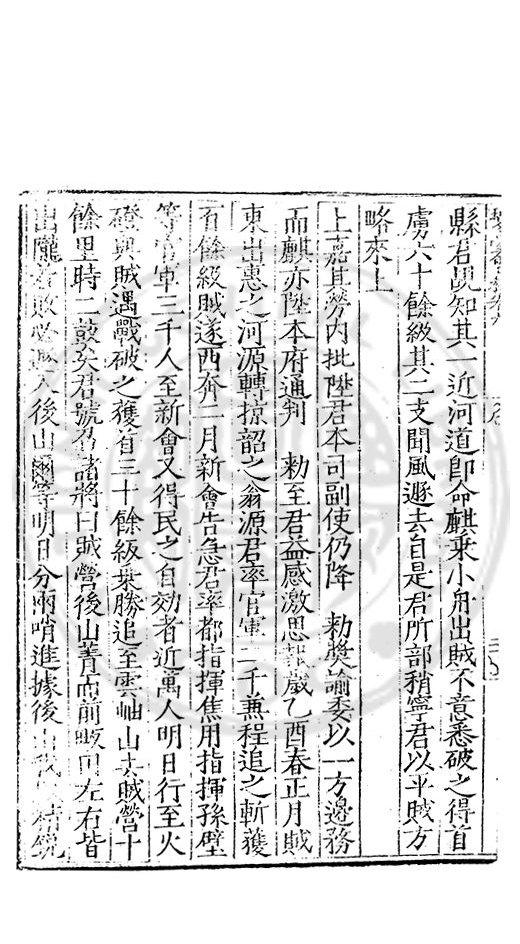 縣君覘知其一近河道卽命麒乘小舟出賊不意悉破之得首
虜六十餘級其二支聞風遯去自是君所部稍寧君以平賊方
略來上
上嘉其勞内批陞君本司副使仍降 勑奬諭委以一方邊務
而麒亦陞本府通判 勑至君益感激思報歲乙酉春正月賊
東出惠之河源轉掠韶之翁源君率官軍二千兼程追之斬獲
百餘級賊遂西奔二月新會告急君率都指揮焦用指揮孫璧
等官軍三千人至新會又得民之自効者近萬人明日行至火
磴與賊遇戰破之獲首三十餘級乗勝追至雲岫山去賊營十
餘里時二鼓矣君號召諸將曰賊營後山菁而前 田左右皆
出 若敗必遯入後山爾等明日分兩哨進據後山我 精銳